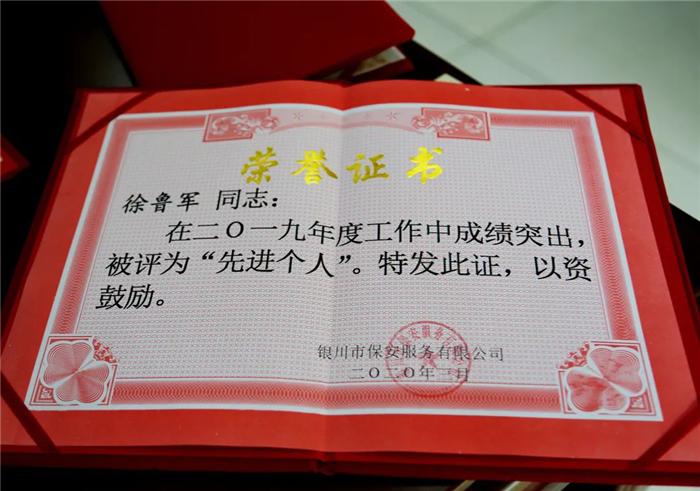 荣誉证书
徐鲁军 同志：
在二〇一九年度工作中成绩突出，
被评为“先进个人”。特发此证，以资
鼓励。
银川市保安服务有限公司
二〇二〇年一月